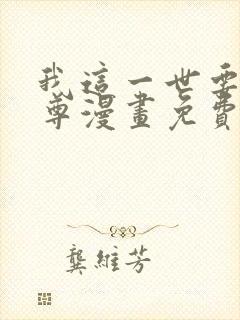 我這一世要
尊漫畫免費
龔維芳